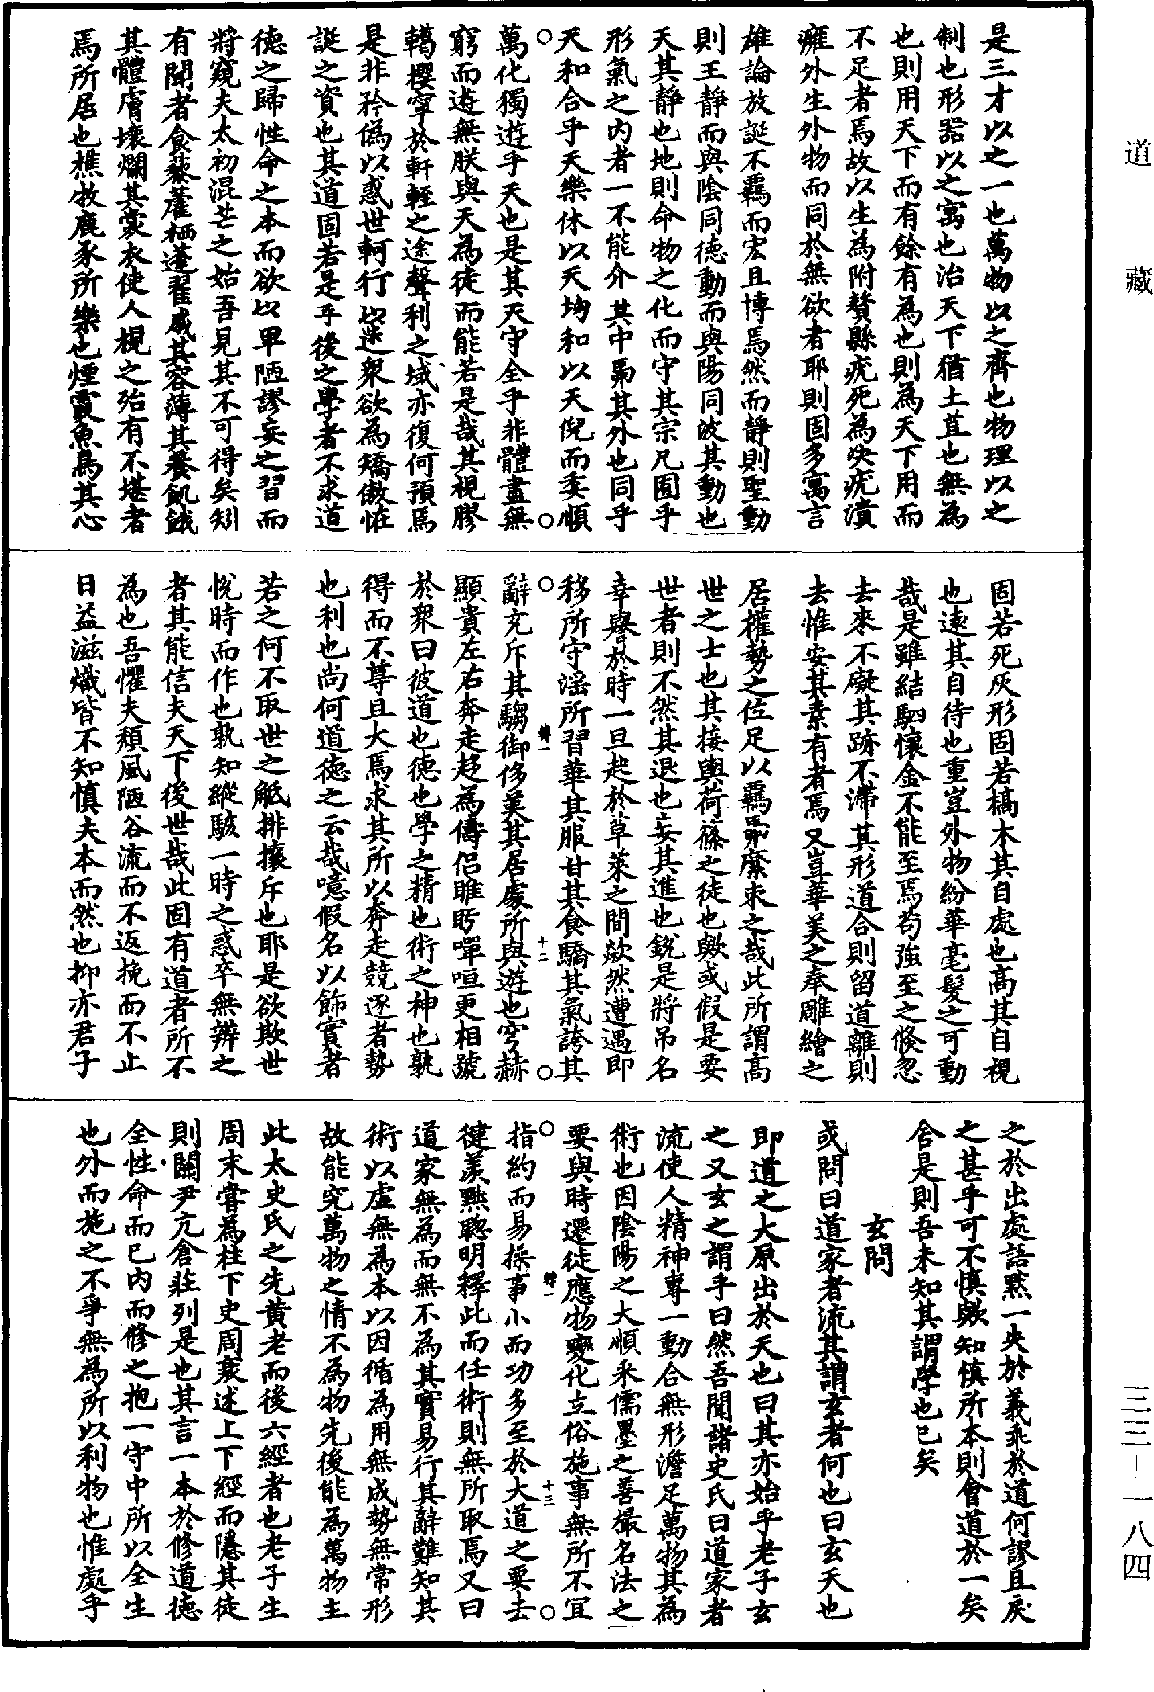 道藏
三三—一八四
是三才以之一也萬物以之齊也物理以之
制也形器以之寓也治天下猶土苴也無為
也則用天下而有餘有為也則為天下用而
不足者焉故以生為附贅縣疣死為決疣潰
癰外生外物而同於無欲者耶則固多寓言
雄論放誕不羈而宏且博焉然而靜則聖動
則王靜而與陰同德動而與陽同波其動也
天其靜也地則命物之化而守其宗凡囿乎
形氣之內者一不能介其中豗其外也同乎
天和合乎天樂休以天均和以天倪而委順
萬化獨遊乎天也是其天守全乎非體盡無
窮而遊無朕與天為徒而能若是哉其視膠
轕攖寧於軒輊之途聲利之域亦復何預焉
是非矜偽以惑世軻行以迷眾欲為矯傲恠
誕之資也其道固若是乎後之學者不求道
德之歸性命之本而欲以卑陋謬妄之習而
將窺夫太初混茫之始吾見其不可得矣矧
有聞者食藜藿栖蓬翟戚其容薄其養飢餓
其體膚壞爛其裳衣使人視之殆有不堪者
焉所居也樵牧鹿豕所樂也煙霞魚鳥其心
固若死灰形固若槁木其自處也高其自視
也遠其自待也重豈外物紛華毫髮之可動
哉是雖結駟懷金不能至焉苟強至之倏忽
去來不礙其跡不滯其形道合則留道離則
去惟安其素有者焉又豈華美之奉雕繪之
居權勢之位足以羈帛縻束之哉此所謂高
世之士也其接輿荷蓧之徒也歟或假是要
世者則不然其退也妄其進也銳是將吊名
幸譽於時一旦起於草萊之間欻然遭遇即
移所守滛所習華其服甘其食驕其氣誇其
辭充斥其騶御侈美其居處所與遊也穹赫
顯貴左右奔走趍為儔侣睢盱嘽咺更相號
於眾曰彼道也德也學之精也術之神也孰
得而不尊且大焉求其所以奔走競逐者勢
也利也尚何道德之云哉噫假名以飾實者
若之何不取世之觝排攘斥也耶是欲欺世
悅時而作也孰知縱駭一時之惑卒無辨之
者其能信夫天下後世哉此固有道者所不
為也吾懼夫頹風陋谷流而不返挽而不止
日益滋熾皆不知慎夫本而然也抑亦君子
之於出處語默一失於義乖於道何謬且戾
之甚乎可不慎歟知慎所本則會道於一矣
舍是則吾未知其謂學也已矣
玄問
或問曰道家者流其謂玄者何也曰玄天也
即道之大原出於天也曰其亦始乎老子玄
之又玄之謂乎曰然吾聞諸史氏曰道家者
流使人精神專一動合無形澹足萬物其為
術也因陰陽之大順采儒墨之善撮名法之
要與時遷徙應物變化立俗施事無所不宜
指約而易操事小而功多至於大道之要去
健羨黜聰明釋此而任術則無所取焉又曰
道家無為而無不為其實易行其辭難知其
術以虛無為本以因循為用無成勢無常形
故能究萬物之情不為物先後能為萬物主
此太史氏之先黃老而後六經者也老子生
周末嘗為柱下史周衰述上下經而隱其徒
則關尹亢倉莊列是也其言一本於修道德
全性命而已內而修之抱一守中所以全生
也外而施之不爭無為所以利物也惟處乎